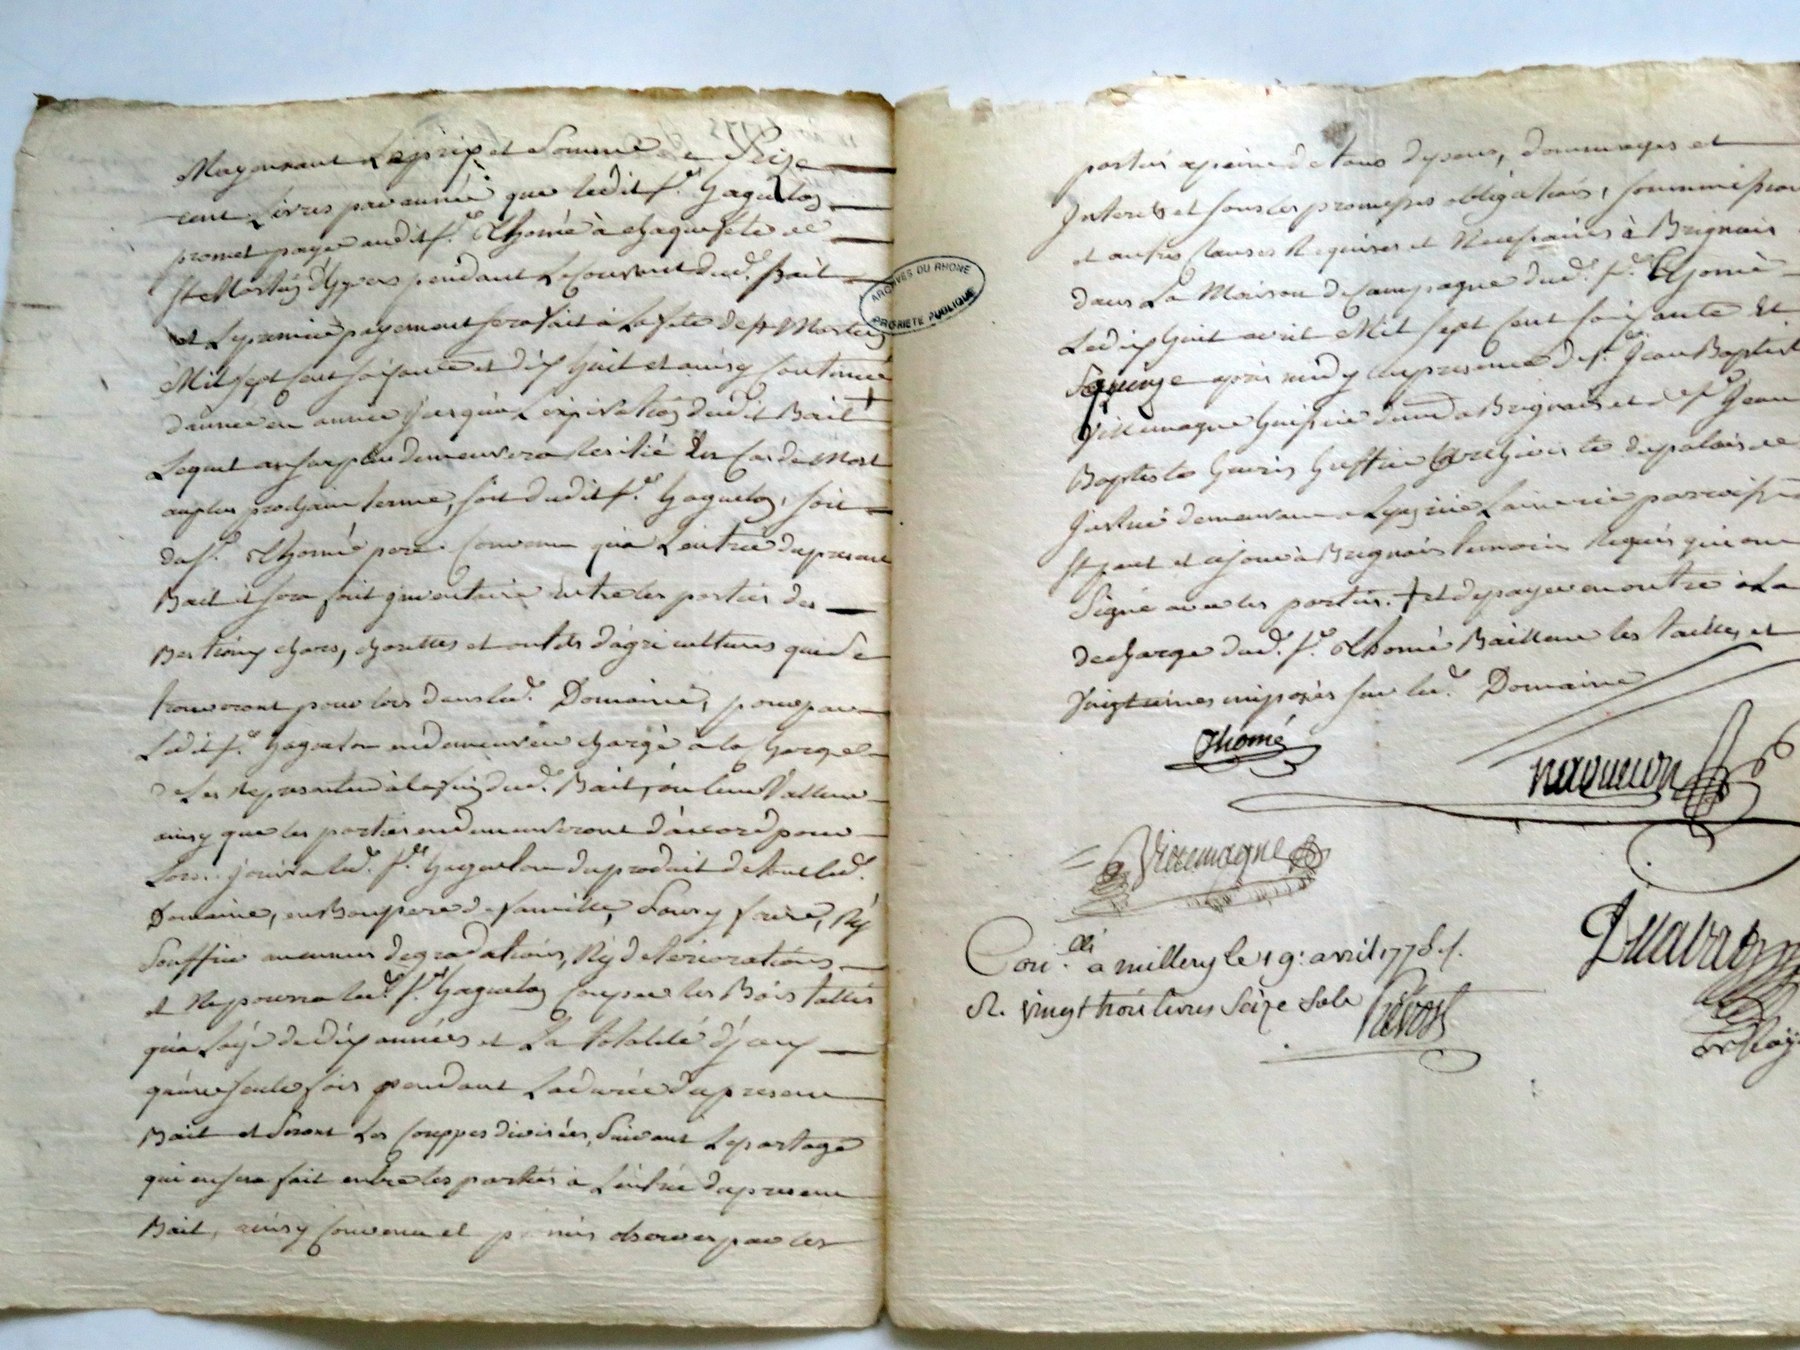 Moyennant Le prix et Somme de Seize
cent Livres par année que ledit Sr. Haguelon
promet payer audit Sr. Thomé à chaque fête de
St Martin d'hyver pendant Le Courant dud. Bail
et Le premier payement sera fait à La fete de St Martin
Mil sept cent soixante et dix huit et ainsy continuer
d'année en année jusqu'a L'expiration dudit Bail +
Lequel au surplus demeurera Resilié En Cas de Mort
au plus prochain terme, soit dudit Sr. haguelon, soit
du Sr. Thomé pere. Convenu qu'a L'entrée du present
Bail il sera fait inventaire Entre les parties des
Bestiaux chars, charettes et outils d'agricultures qui se
trouveront pour lors dans led. Domaine, pour par
Ledit Sr. haguelon en demeurer chargé à la charge
de Les Representer à la fin dud. Bail, ou leur Valleur
ainsy que les parties en demeureront d'accord pour
Lors. jouira led. Sr. haguelon du produit de tout led.
Domaine, en Bon pere de famille, Sans y faire, Ny
Souffrir aucunes degradations, Ny deteriorations
et Ne pourra led. Sr. haguelon Couper les Bois taillis
qu'a L'age de dix années et La totalité d'iceux
qu'une seule fois pendant La durée du present
Bail et Seront Les Couppes divisées, Suivant Le partage
qui en sera fait entre les parties à L'entrée du present
Bail, ainsy Convenu et promis observer par les
parties a peine de tous depens, dommages et
Interets et sous les promesses obligations, soummissions
et autres Clauses Requises et Necessaires à Brignais
dans La Maison de Campagne dud. Sr. Thomé
Le dix huit avril Mil Sept Cent soixante Et
quinze après midy en presence de Sr. Jean Baptiste
Villemagne huissier demt a Brignais et de Sr Jean
Baptiste
demeurant a Lyon rue Lainerie parroisse
St paul et ce jour à Brignais temoins Requis qui ont
Signé avec les parties. + et de payer en outre à La
decharge dud. Sr. Thomé Bailleur les tailles et
Vingtiemes imposés sur led. Domaine
Thomé
haguelon
Villemagne
Conlé. a millery le 19. avril 1775
R. vingt trois livres Seize Sols Prevost
ARCHIVES DU RHONE
PROPRIETE PUBLIQUE